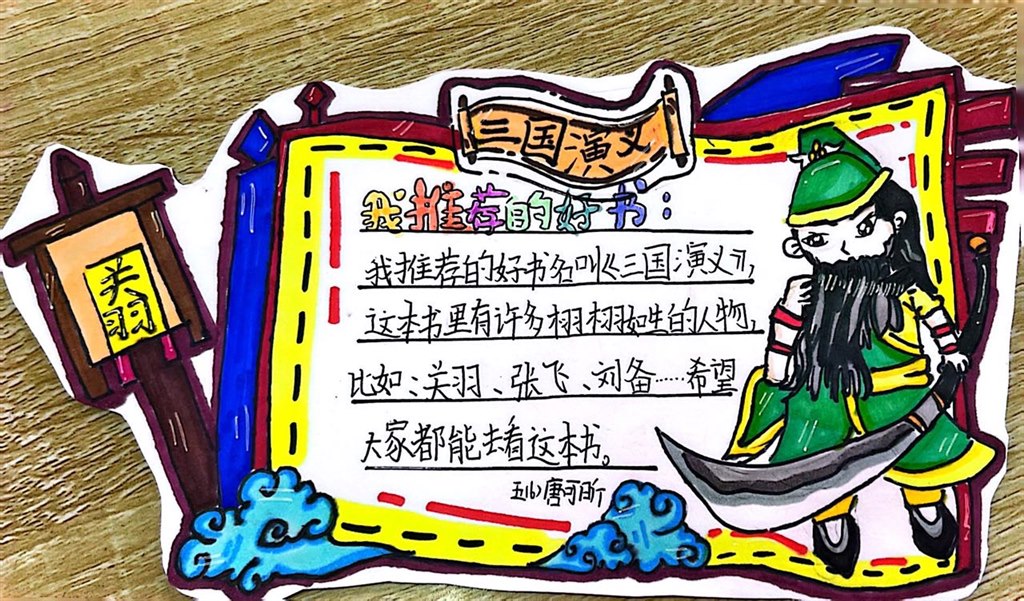 三国演义
我推荐的好书：
我推荐的好书名叫《三国演义》，
这本书里有许多栩栩如生的人物，
比如：关羽、张飞、刘备……希望
大家都能去看这本书。
五(6)唐可昕
关羽